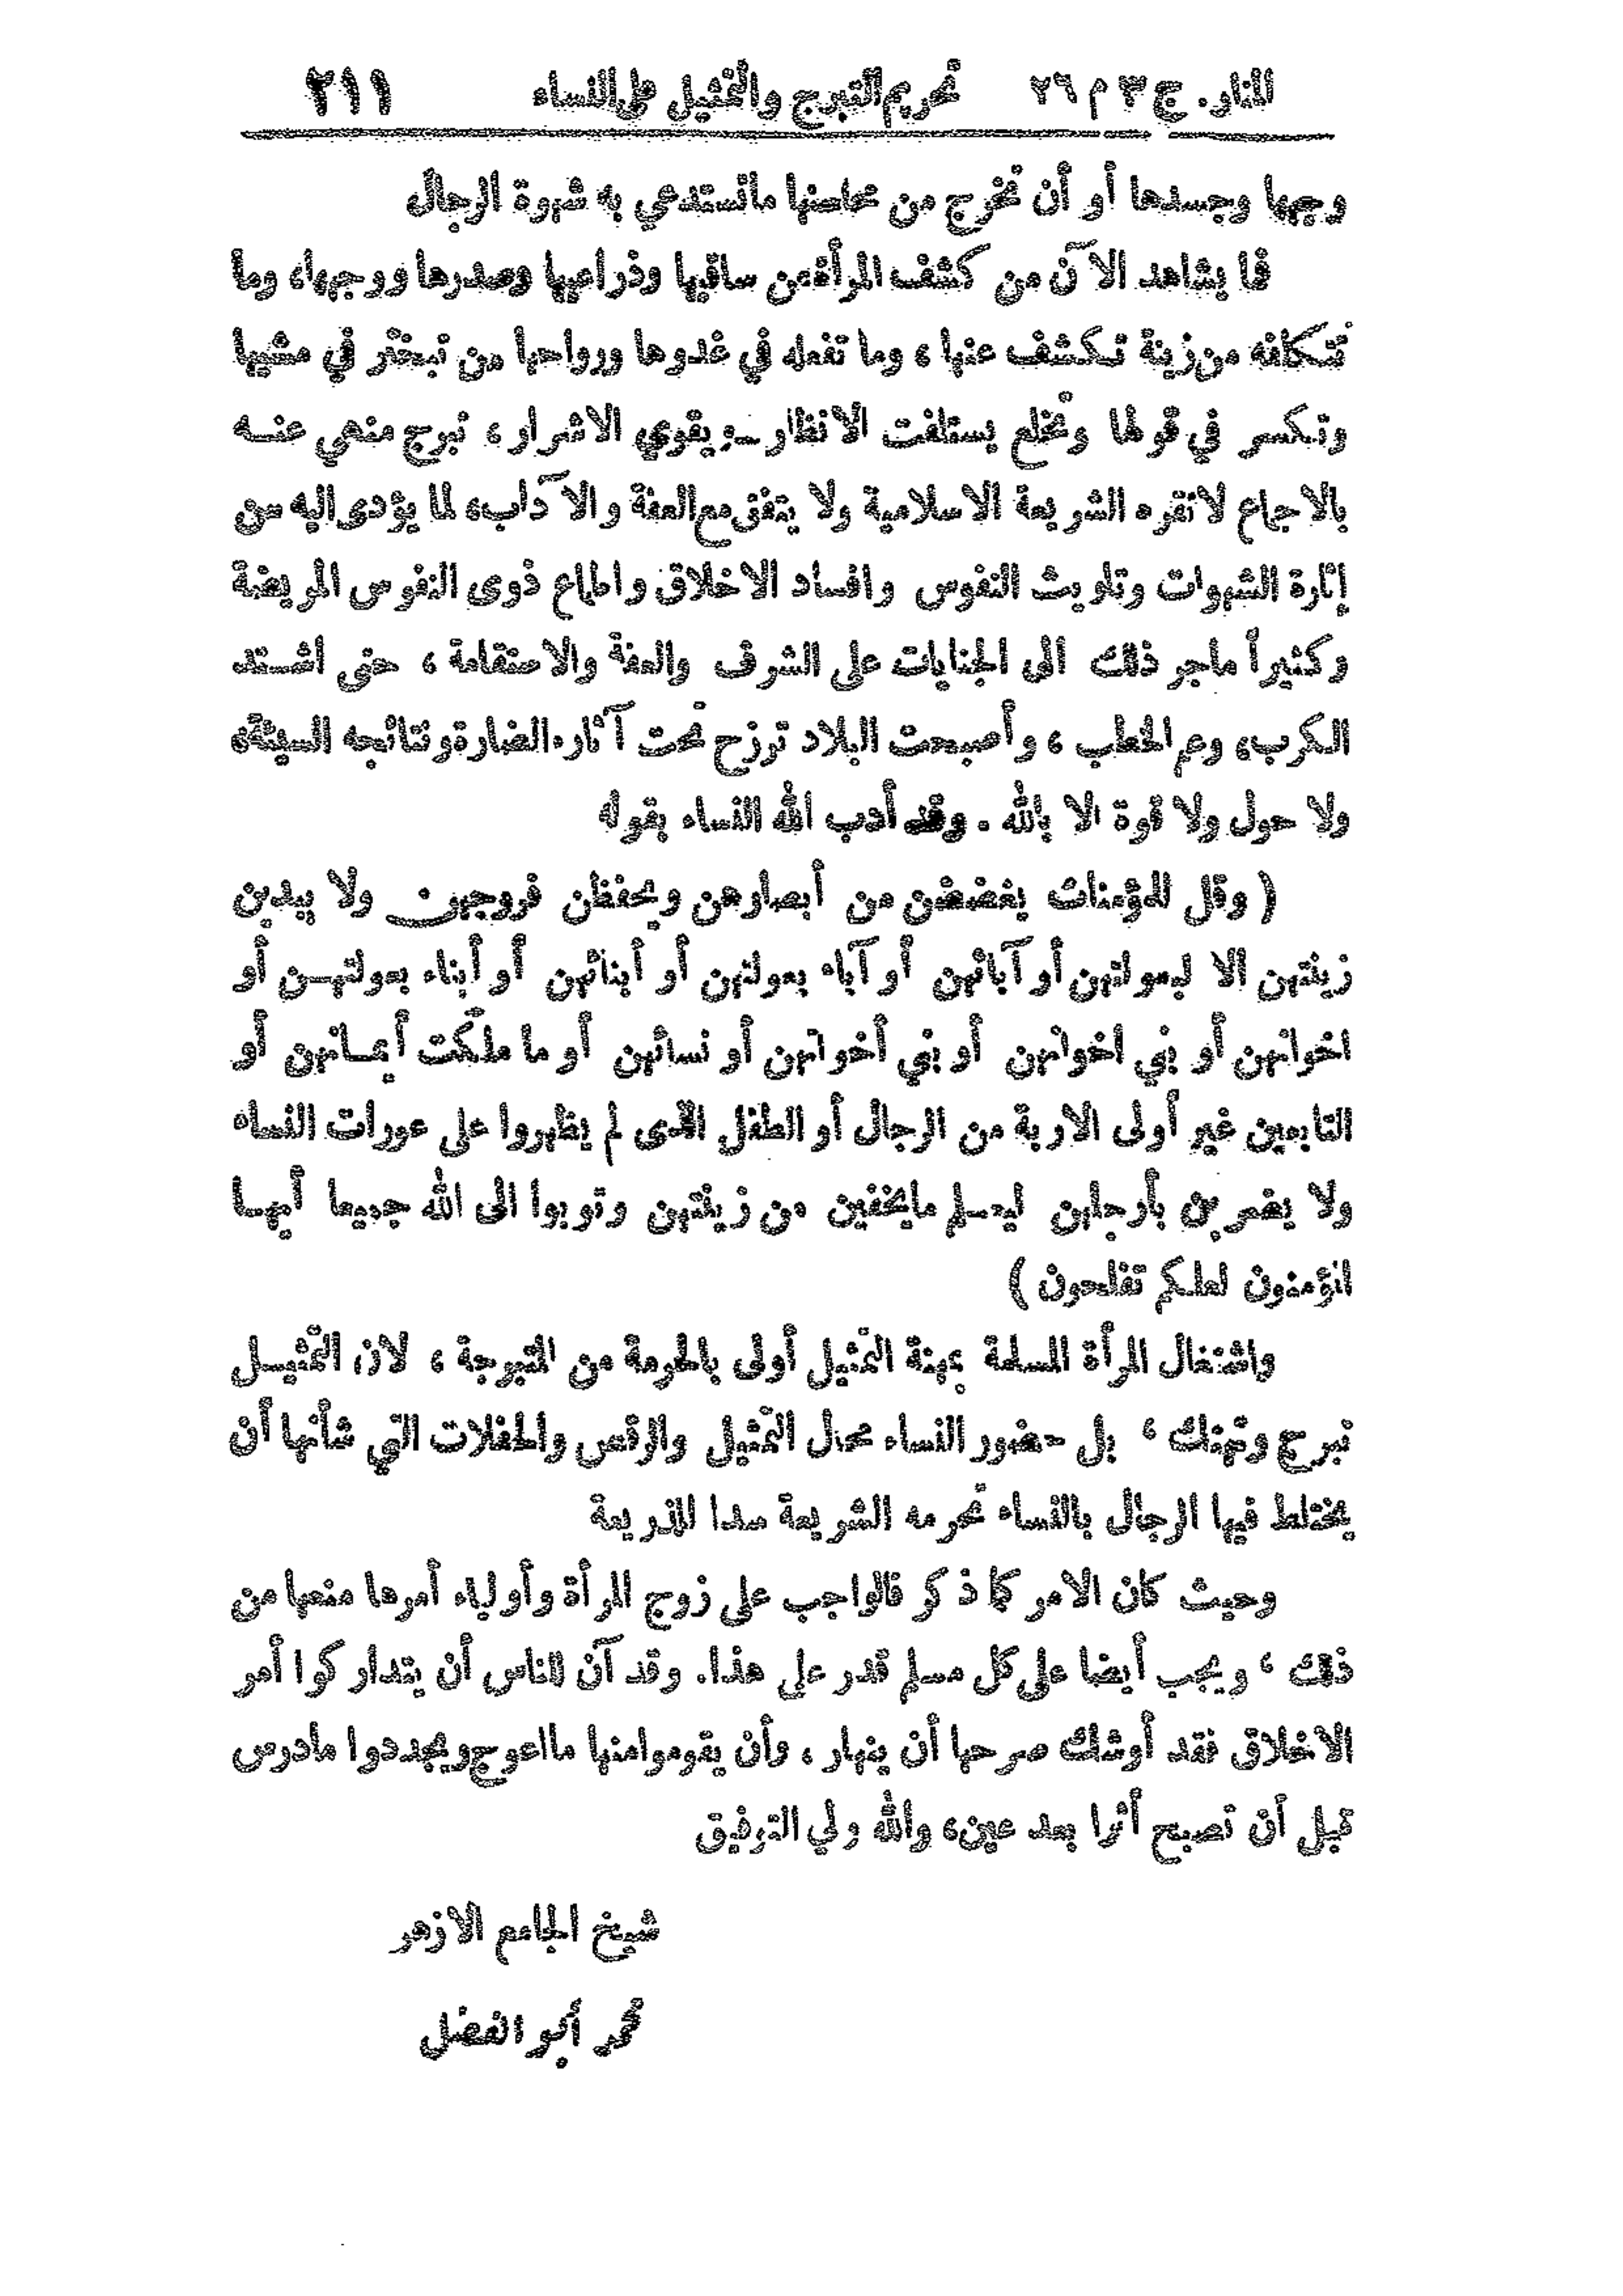 المنار. ج ٣ م ٢٦ تحريم التبرج والتمثيل على النساء ٢١١
وجهها وجسدها أو أن تخرج من محاسنها ماتستدعي به شهوة الرجال
فما يشاهد الآن من كشف المرأة عن ساقيها وذراعيها وصدرها ووجهها، وما
تتكلفه من زينة تكشف عنها ، وما تفعله في غدوها ورواحها من تبختر في مشيها
وتكسر في قولها وتخلع يستلفت الانظار ــ ويقوي الاشرار ، تبرج منهي عنه
بالاجماع لاتقره الشريعة الاسلامية ولا يتفق مع العفة والآداب، لما يؤدى اليه من
إثارة الشهوات وتلويث النفوس وافساد الاخلاق واطماع ذوى النفوس المريضة
وكثيراً ماجر ذلك الى الجنايات على الشرف والعفة والاستقامة ، حتى اشتد
الكرب، وعم الخطب ، وأصبحت البلاد ترزح تحت آثاره الضارة ونتائجه السيئة،
ولا حول ولا قوة الا بالله . وقد أدب الله النساء بقوله
( وقل للمؤمنات يغضضن من أبصارهن ويحفظن فروجهن ولا يبدين
زينتهن الا لبعولتهن أو آبائهن أو آباء بعولتهن أو أبنائهن أو أبناء بعولتهن أو
اخوانهن أو بني اخوانهن أو بني أخواتهن أو نسائهن أو ما ملكت أيمانهن أو
التابعين غير أولى الاربة من الرجال أو الطفل الذى لم يظهروا على عورات النساء
ولا يضربن بأرجلهن ليعلم مايخفين من زينتهن وتوبوا الى الله جميعا أيها
المؤمنون لعلكم تفلحون )
واشتغال المرأة المسلمة بمهنة التمثيل أولى بالحرمة من المتبرجة ، لان التمثيل
تبرج وتهتك ، بل حضور النساء محال التمثيل والرقص والحفلات التي شأنها أن
يختلط فيها الرجال بالنساء تحرمه الشريعة سدا للذريعة
وحيث كان الامر كما ذكر فالواجب على زوج المرأة وأولياء أمرها منعها من
ذلك ، ويجب أيضا على كل مسلم قدر على هذا. وقد آن للناس أن يتداركوا أمر
الاخلاق فقد أوشك صرحها أن ينهار ، وأن يقوموا منها مااعوج ويجددوا مادرس
قبل أن تصبح أثرا بعد عين، والله ولي التوفيق
شيخ الجامع الازهر
محمد أبو الفضل